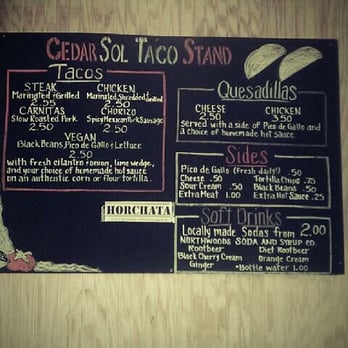 CEDAR SOL TACO STAND
Tacos
STEAK
Marinated & Grilled
2.95
CHICKEN
Marinated, Shredded & Grilled
2.50
CARNITAS
Slow Roasted Pork
2.50
CHORIZO
Spicy Mexican Pork Sausage
2.50
VEGAN
Black Beans, Pico de Gallo & Lettuce
2.50
with fresh cilantro & onion, lime wedge,
and your choice of homemade hot sauce
on an authentic corn or flour tortilla.
HORCHATA
Quesadillas
CHEESE
2.50
CHICKEN
3.50
served with a side of Pico de Gallo and
a choice of homemade hot sauce.
Sides
Pico de Gallo (Fresh daily!) .50
Cheese .50 Tortilla Chips .75
Sour Cream .50 Black Beans .50
Extra Meat 1.00 Extra Hot Sauce .25
Soft Drinks
Locally made Sodas from 2.00
NORTHWOODS SODA AND SYRUP CO.
Rootbeer Diet Rootbeer
Black Cherry Cream Orange Cream
Ginger •Bottle water 1.00